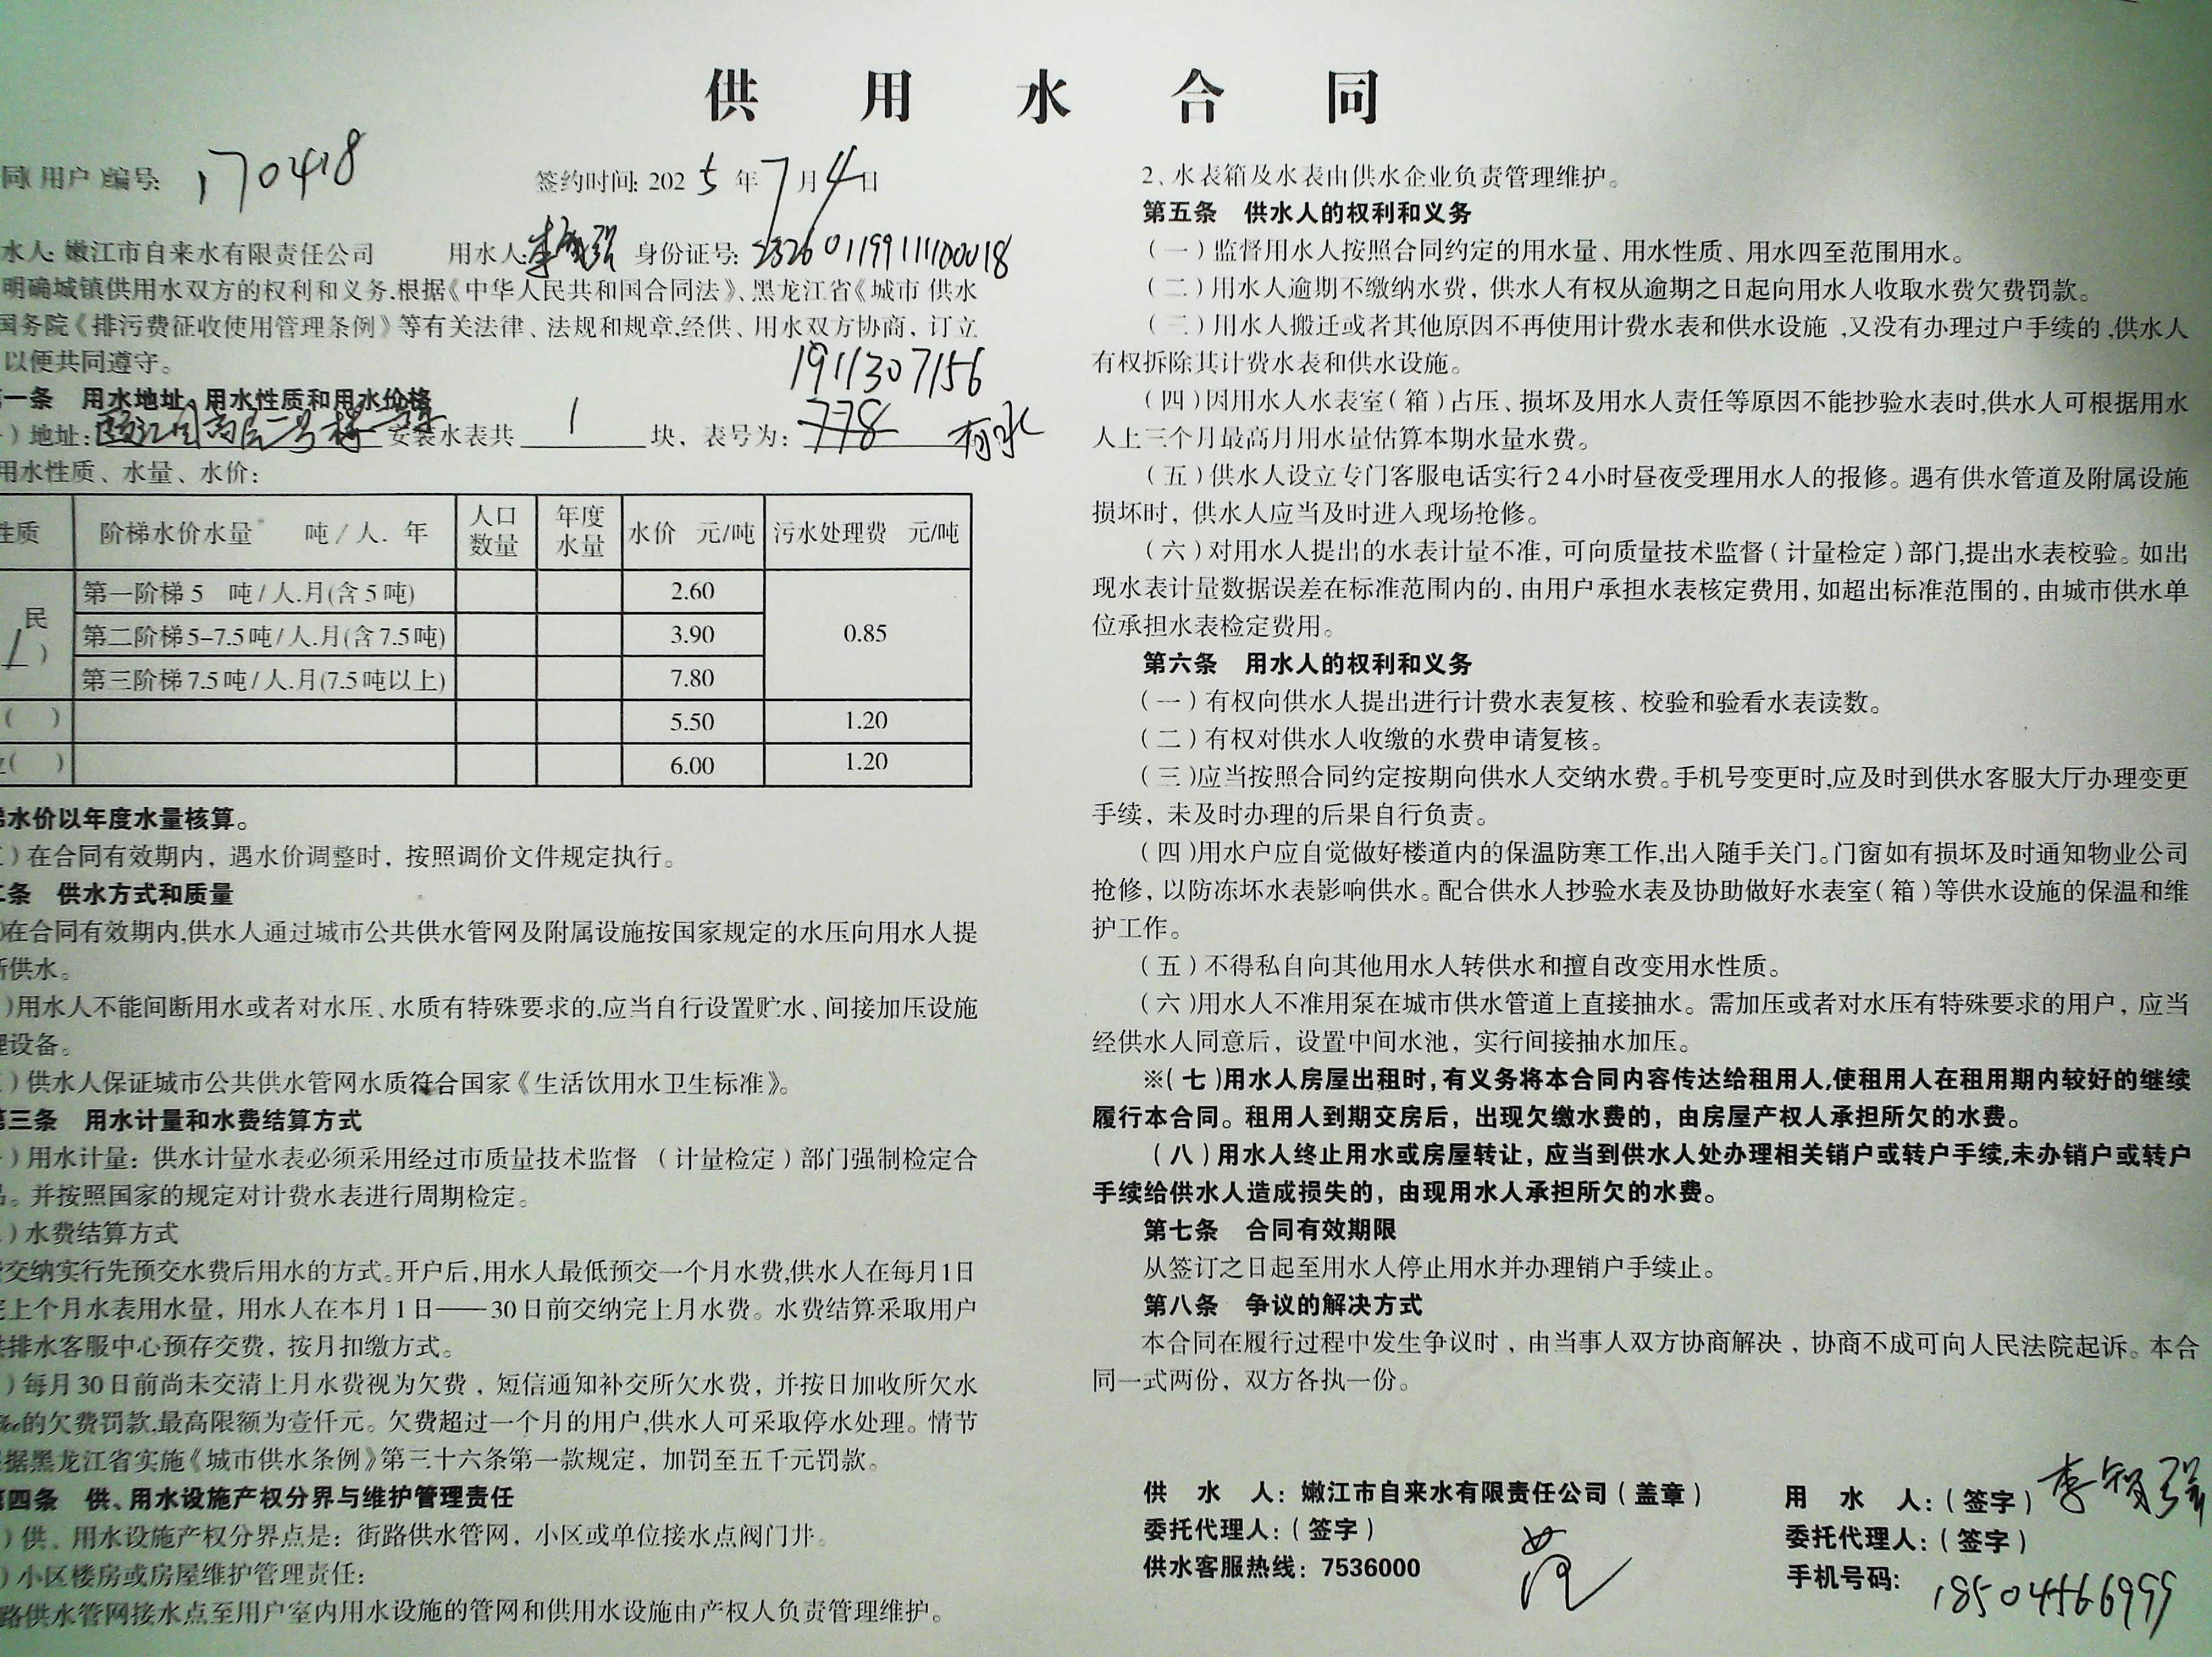 供用水合同
同(用户)编号: 170418 签约时间: 2025年7月4日
水人: 嫩江市自来水有限责任公司 用水人: 李 强 身份证号: 232601199111100018
明确城镇供用水双方的权利和义务.根据《中华人民共和国合同法》、黑龙江省《城市 供水
国务院《排污费征收使用管理条例》等有关法律、法规和规章.经供、用水双方协商，订立
以便共同遵守。
1911307156
一条 用水地址、用水性质和用水价格
)地址: 安装水表共 1 块，表号为: 778 有水
用水性质、水量、水价:
性质 阶梯水价水量 吨/人. 年 人口数量 年度水量 水价 元/吨 污水处理费 元/吨
民 第一阶梯5 吨/人.月(含5吨) 2.60 0.85
第二阶梯5-7.5吨/人.月(含7.5吨) 3.90
第三阶梯7.5吨/人.月(7.5吨以上) 7.80
( ) 5.50 1.20
( ) 6.00 1.20
水价以年度水量核算。
)在合同有效期内，遇水价调整时，按照调价文件规定执行。
条 供水方式和质量
)在合同有效期内,供水人通过城市公共供水管网及附属设施按国家规定的水压向用水人提
供水。
)用水人不能间断用水或者对水压、水质有特殊要求的,应当自行设置贮水、间接加压设施
设备。
)供水人保证城市公共供水管网水质符合国家《生活饮用水卫生标准》。
第三条 用水计量和水费结算方式
)用水计量: 供水计量水表必须采用经过市质量技术监督 (计量检定)部门强制检定合
。并按照国家的规定对计费水表进行周期检定。
)水费结算方式
交纳实行先预交水费后用水的方式。开户后,用水人最低预交一个月水费,供水人在每月1日
上个月水表用水量，用水人在本月1日——30日前交纳完上月水费。水费结算采取用户
排水客服中心预存交费，按月扣缴方式。
)每月30日前尚未交清上月水费视为欠费，短信通知补交所欠水费，并按日加收所欠水
的欠费罚款,最高限额为壹仟元。欠费超过一个月的用户,供水人可采取停水处理。情节
据黑龙江省实施《城市供水条例》第三十六条第一款规定，加罚至五千元罚款。
第四条 供、用水设施产权分界与维护管理责任
)供、用水设施产权分界点是: 街路供水管网，小区或单位接水点阀门井。
)小区楼房或房屋维护管理责任:
路供水管网接水点至用户室内用水设施的管网和供用水设施由产权人负责管理维护。
2、水表箱及水表由供水企业负责管理维护。
第五条 供水人的权利和义务
(一)监督用水人按照合同约定的用水量、用水性质、用水四至范围用水。
(二)用水人逾期不缴纳水费，供水人有权从逾期之日起向用水人收取水费欠费罚款。
(三)用水人搬迁或者其他原因不再使用计费水表和供水设施,又没有办理过户手续的,供水人
有权拆除其计费水表和供水设施。
(四)因用水人水表室(箱)占压、损坏及用水人责任等原因不能抄验水表时,供水人可根据用水
人上三个月最高月用水量估算本期水量水费。
(五)供水人设立专门客服电话实行24小时昼夜受理用水人的报修。遇有供水管道及附属设施
损坏时，供水人应当及时进入现场抢修。
(六)对用水人提出的水表计量不准，可向质量技术监督(计量检定)部门,提出水表校验。如出
现水表计量数据误差在标准范围内的，由用户承担水表核定费用，如超出标准范围的，由城市供水单
位承担水表检定费用。
第六条 用水人的权利和义务
(一)有权向供水人提出进行计费水表复核、校验和验看水表读数。
(二)有权对供水人收缴的水费申请复核。
(三)应当按照合同约定按期向供水人交纳水费。手机号变更时,应及时到供水客服大厅办理变更
手续，未及时办理的后果自行负责。
(四)用水户应自觉做好楼道内的保温防寒工作,出入随手关门。门窗如有损坏及时通知物业公司
抢修，以防冻坏水表影响供水。配合供水人抄验水表及协助做好水表室(箱)等供水设施的保温和维
护工作。
(五)不得私自向其他用水人转供水和擅自改变用水性质。
(六)用水人不准用泵在城市供水管道上直接抽水。需加压或者对水压有特殊要求的用户，应当
经供水人同意后，设置中间水池，实行间接抽水加压。
※(七)用水人房屋出租时,有义务将本合同内容传达给租用人,使租用人在租用期内较好的继续
履行本合同。租用人到期交房后，出现欠缴水费的，由房屋产权人承担所欠的水费。
(八)用水人终止用水或房屋转让，应当到供水人处办理相关销户或转户手续,未办销户或转户
手续给供水人造成损失的，由现用水人承担所欠的水费。
第七条 合同有效期限
从签订之日起至用水人停止用水并办理销户手续止。
第八条 争议的解决方式
本合同在履行过程中发生争议时，由当事人双方协商解决，协商不成可向人民法院起诉。本合
同一式两份，双方各执一份。
供 水 人: 嫩江市自来水有限责任公司(盖章)
委托代理人:(签字)
供水客服热线: 7536000
用 水 人:(签字) 李智强
委托代理人:(签字)
手机号码: 18504566999